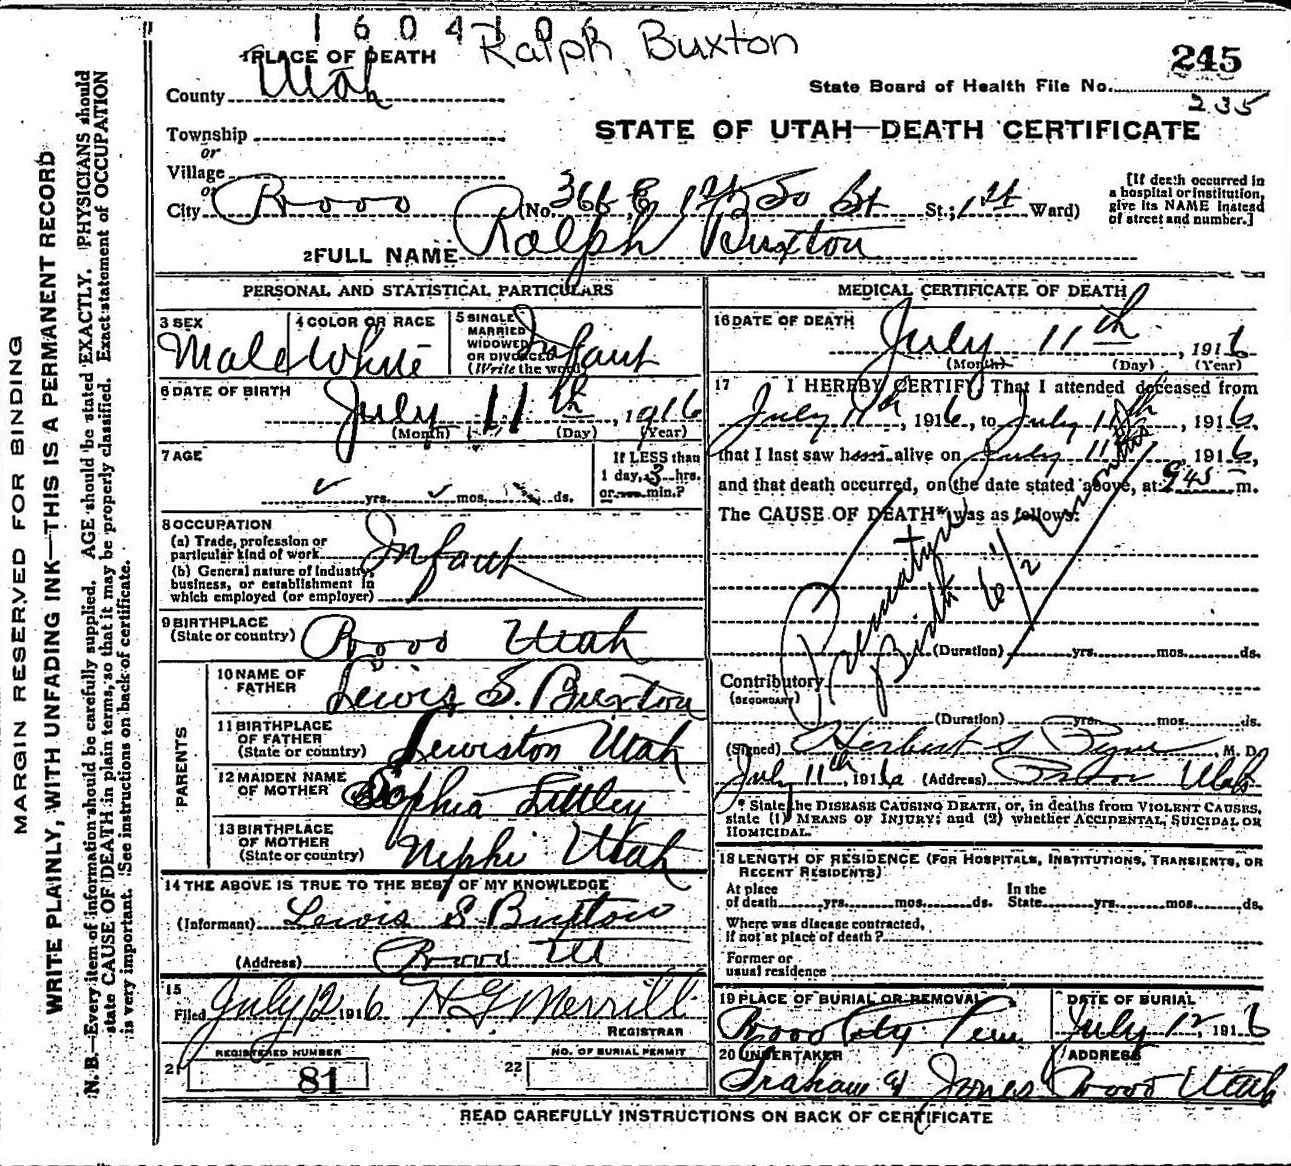 1604106 Ralph Buxton
1 PLACE OF DEATH
245
County Utah
State Board of Health File No.
235
Township
or
STATE OF UTAH—DEATH CERTIFICATE
Village
or
City Provo (No. 366 E 1st So St St.; 1st Ward)
[If death occurred in a hospital or institution, give its NAME instead of street and number.]
2 FULL NAME Ralph Buxton
PERSONAL AND STATISTICAL PARTICULARS
3 SEX Male
4 COLOR OR RACE White
5 SINGLE MARRIED WIDOWED OR DIVORCED (Write the word) Infant
6 DATE OF BIRTH July 11th, 1916
(Month) (Day) (Year)
7 AGE
yrs. mos. ds.
If LESS than 1 day, 3 hrs. or min.?
8 OCCUPATION
(a) Trade, profession or particular kind of work Infant
(b) General nature of Industry, business, or establishment in which employed (or employer)
9 BIRTHPLACE (State or country) Provo Utah
PARENTS
10 NAME OF FATHER Lewis S. Buxton
11 BIRTHPLACE OF FATHER (State or country) Lewiston Utah
12 MAIDEN NAME OF MOTHER Sophia Littley
13 BIRTHPLACE OF MOTHER (State or country) Nephi Utah
14 THE ABOVE IS TRUE TO THE BEST OF MY KNOWLEDGE
(Informant) Lewis S Buxton
(Address) Provo Ut
15
Filed July 12 1916 H G Merrill
REGISTRAR
REGISTERED NUMBER
21 81
NO. OF BURIAL PERMIT
22
MEDICAL CERTIFICATE OF DEATH
16 DATE OF DEATH July 11th, 1916
(Month) (Day) (Year)
17 I HEREBY CERTIFY, That I attended deceased from
July 11th, 1916, to July 11th, 1916,
that I last saw him alive on July 11th, 1916,
and that death occurred, on the date stated above, at 9 45 m.
The CAUSE OF DEATH* was as follows:
Premature Birth 6 1/2 months
(Duration) yrs. mos. ds.
Contributory
(SECONDARY)
(Duration) yrs. mos. ds.
(Signed) Herbert S Pyne M. D.
July 11th, 1916 (Address) Provo Utah
* State the DISEASE CAUSING DEATH, or, in deaths from VIOLENT CAUSES,
state (1) MEANS OF INJURY; and (2) whether ACCIDENTAL, SUICIDAL OR
HOMICIDAL.
18 LENGTH OF RESIDENCE (FOR HOSPITALS, INSTITUTIONS, TRANSIENTS, OR
RECENT RESIDENTS)
At place of death yrs. mos. ds. In the State yrs. mos. ds.
Where was disease contracted,
if not at place of death?
Former or
usual residence
19 PLACE OF BURIAL OR REMOVAL Provo City Cem
DATE OF BURIAL July 12 1916
20 UNDERTAKER Graham & Jones
ADDRESS Provo Utah
READ CAREFULLY INSTRUCTIONS ON BACK OF CERTIFICATE
MARGIN RESERVED FOR BINDING
WRITE PLAINLY, WITH UNFADING INK—THIS IS A PERMANENT RECORD
N. B.—Every item of information should be carefully supplied. AGE should be stated EXACTLY. PHYSICIANS should
state CAUSE OF DEATH in plain terms, so that it may be properly classified. Exact statement of OCCUPATION
is very important. (See instructions on back of certificate.